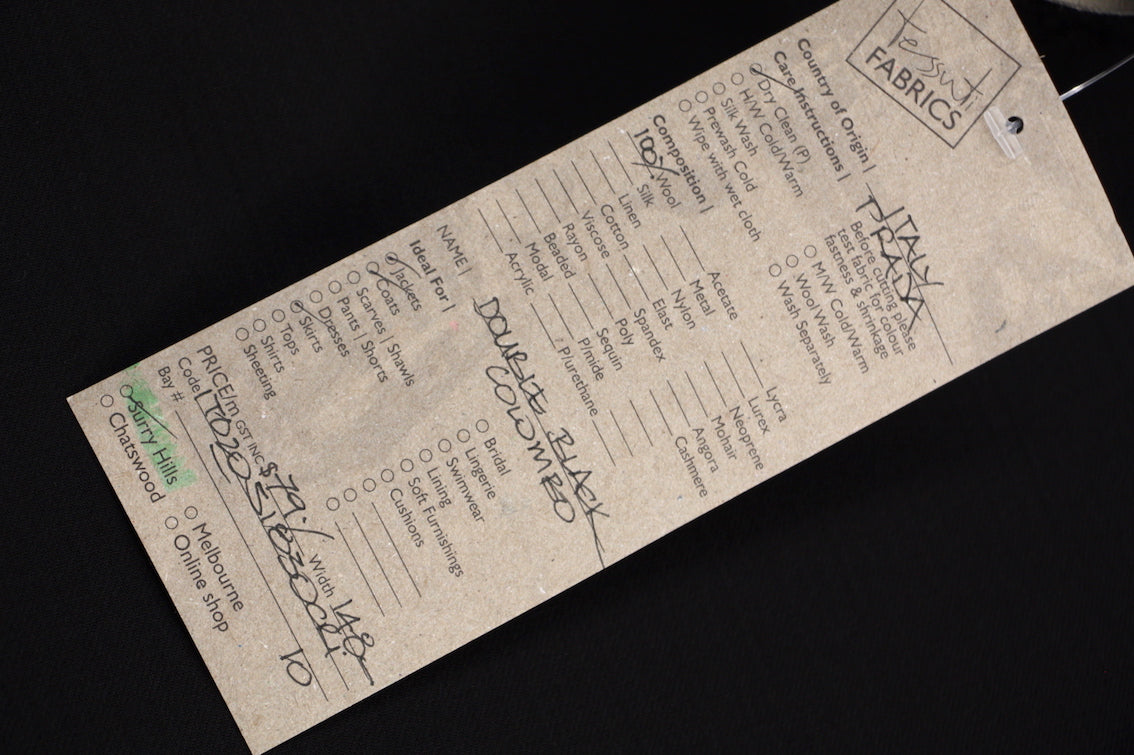 Tessuti
FABRICS
Country of Origin | ITALY
PRADA
Care Instructions | Before cutting please
test fabric for colour
fastness & shrinkage
Dry Clean (P)
H/W Cold/Warm
Silk Wash
Prewash Cold
Wipe with wet cloth
M/W Cold/Warm
Wool Wash
Wash Separately
Composition |
100% Wool
Silk
Linen
Cotton
Viscose
Rayon
Beaded
Modal
Acrylic
Acetate
Metal
Nylon
Elast
Spandex
Poly
Sequin
P/mide
P/urethane
Lycra
Lurex
Neoprene
Mohair
Angora
Cashmere
NAME | DOUBLE BLACK
COLOMBO
Ideal For |
Jackets
Coats
Scarves | Shawls
Pants | Shorts
Dresses
Skirts
Tops
Shirts
Sheeting
Bridal
Lingerie
Swimwear
Lining
Soft Furnishings
Cushions
PRICE/m GST INC $79./ Width 148
Code|
Bay # 10
Surry Hills
Chatswood
Melbourne
Online shop